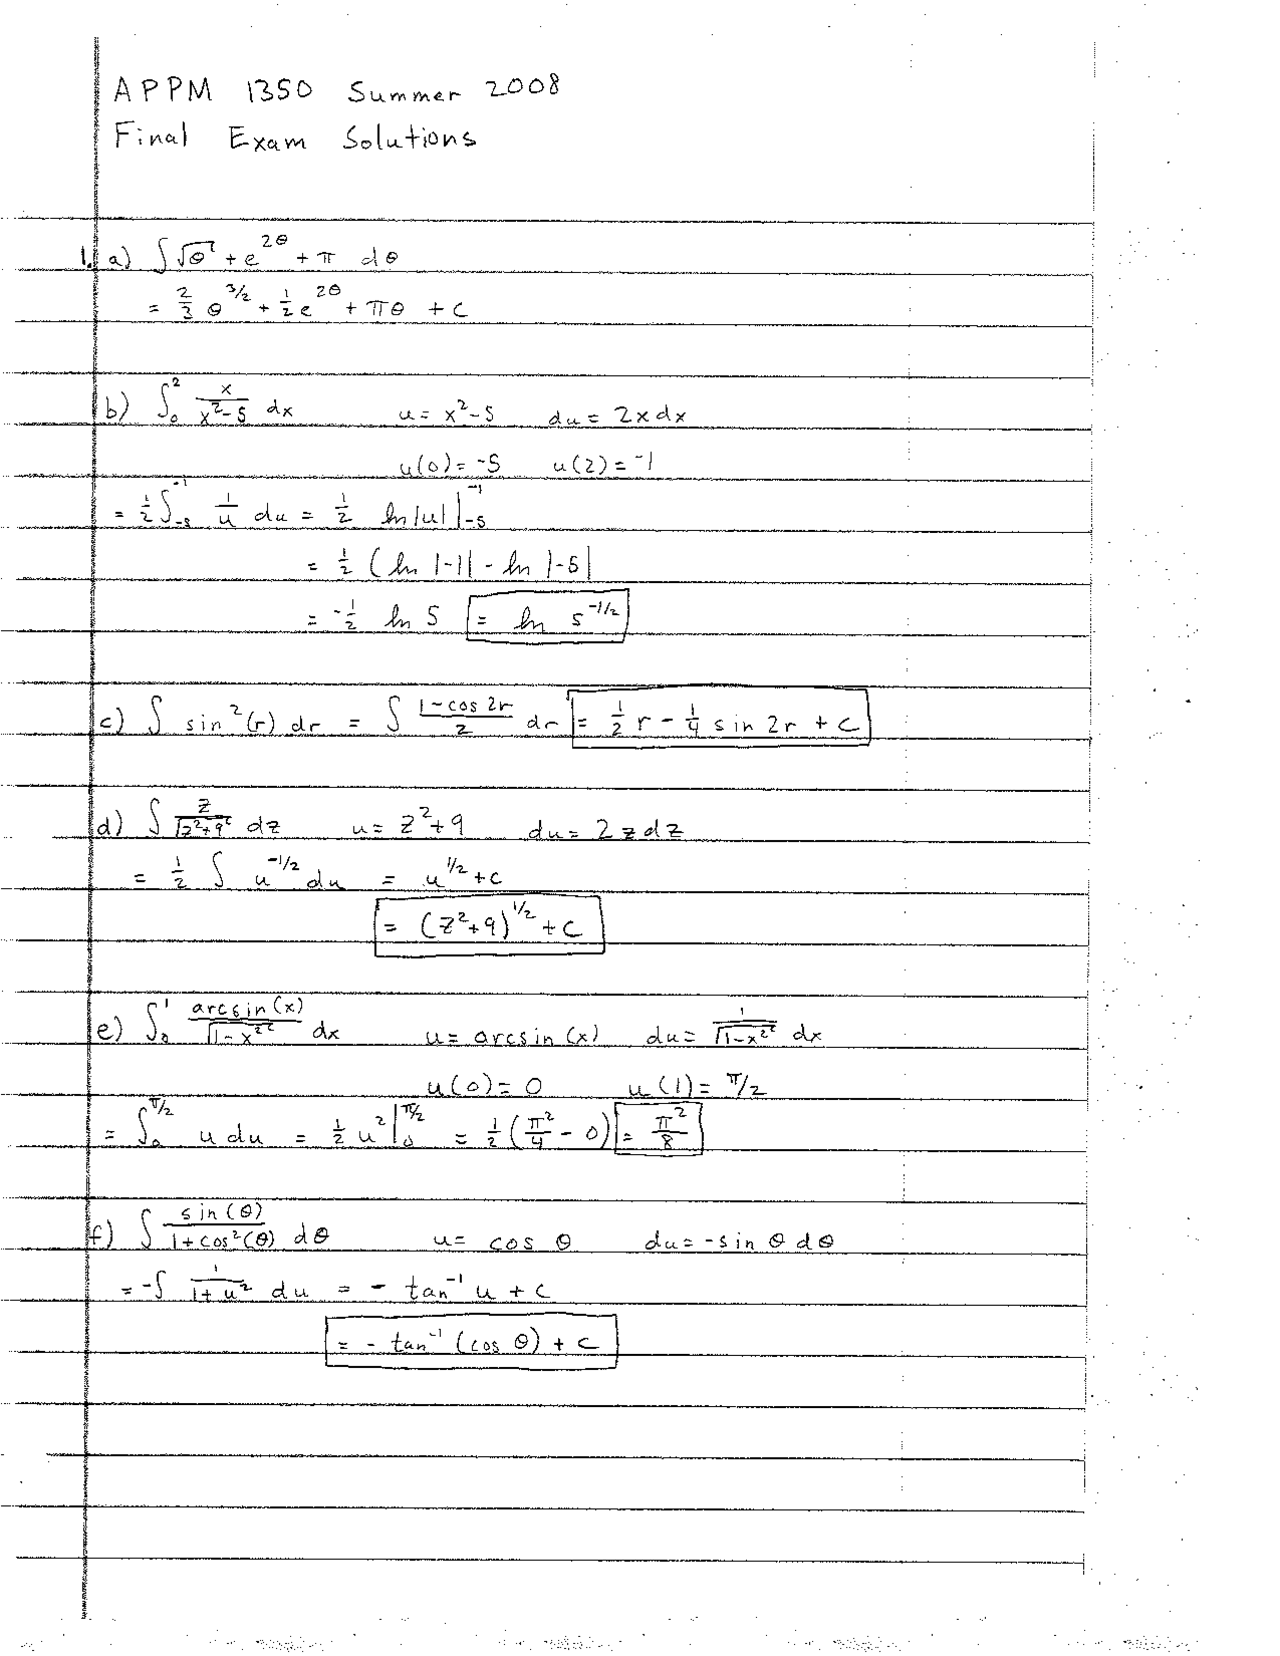 APPM 1350 Summer 2008
Final Exam Solutions
1. a) ∫ √θ + e^{2θ} + π dθ
= 2/3 θ^{3/2} + 1/2 e^{2θ} + πθ + C
b) ∫_0^2 x/(x^2-5) dx u = x^2-5 du = 2x dx
u(0) = -5 u(2) = -1
= 1/2 ∫_{-5}^{-1} 1/u du = 1/2 ln|u| |_{-5}^{-1}
= 1/2 (ln |-1| - ln |-5|
= -1/2 ln 5 = ln 5^{-1/2}
c) ∫ sin^2(r) dr = ∫ (1-cos 2r)/2 dr = 1/2 r - 1/4 sin 2r + C
d) ∫ z/√(z^2+9) dz u = z^2+9 du = 2z dz
= 1/2 ∫ u^{-1/2} du = u^{1/2} + C
= (z^2+9)^{1/2} + C
e) ∫_0^1 arcsin(x)/√(1-x^2) dx u = arcsin(x) du = 1/√(1-x^2) dx
u(0) = 0 u(1) = π/2
= ∫_0^{π/2} u du = 1/2 u^2 |_0^{π/2} = 1/2 (π^2/4 - 0) = π^2/8
f) ∫ sin(θ)/(1+cos^2(θ)) dθ u = cos θ du = -sin θ dθ
= -∫ 1/(1+u^2) du = - tan^{-1} u + C
= - tan^{-1} (cos θ) + C